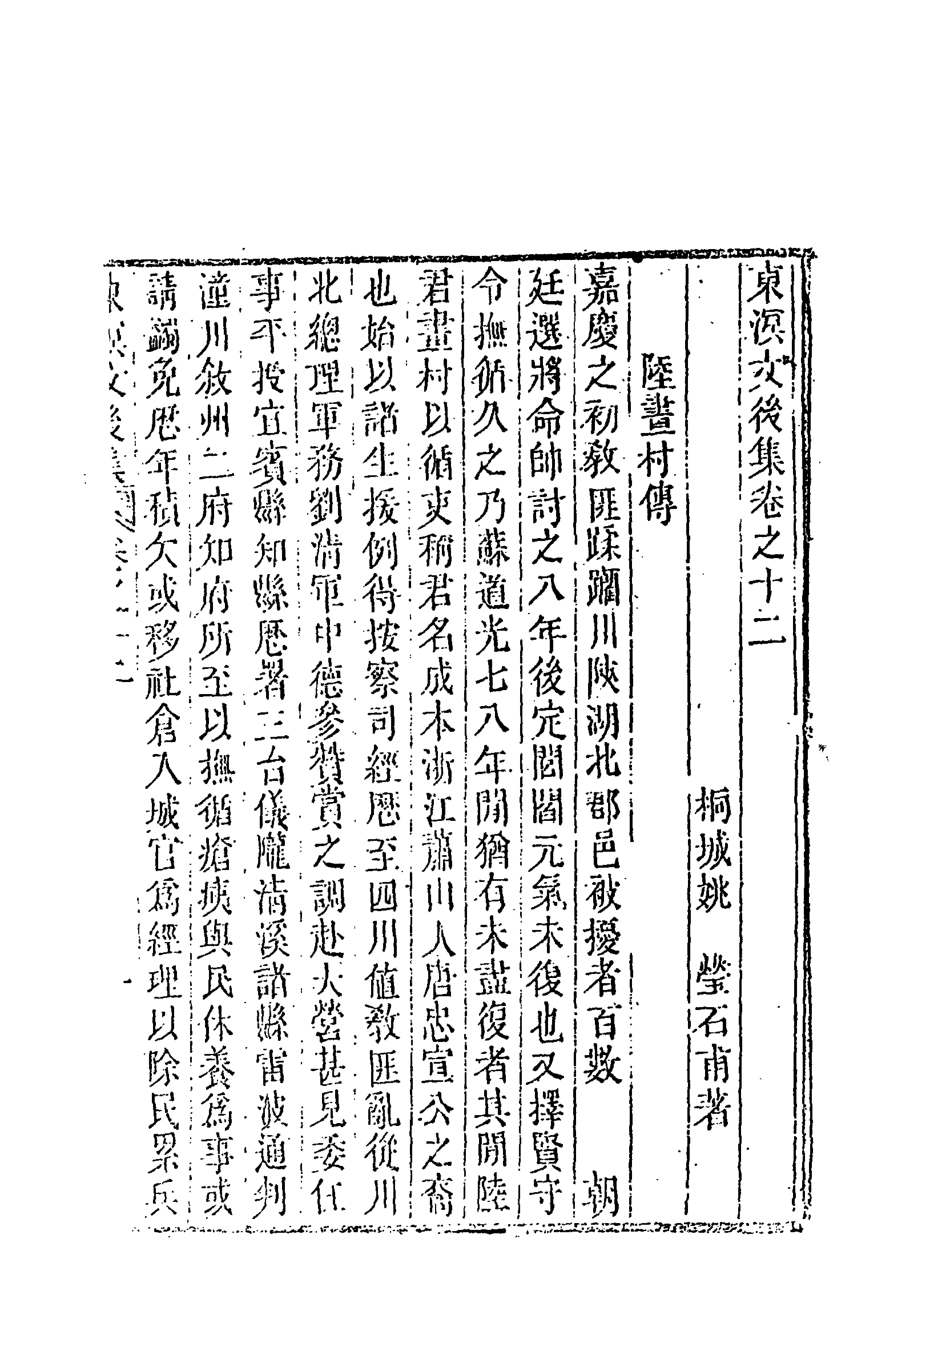 東溟文後集卷之十二
桐城姚　瑩石甫著
陸畫村傳
嘉慶之初敎匪蹂躪川陝湖北郡邑被擾者百數　朝
廷選將命帥討之八年後定閭閻元氣未復也又擇賢守
令撫循久之乃蘇道光七八年閒猶有未盡復者其閒陸
君畫村以循吏稱君名成本浙江蕭山人唐忠宣公之裔
也始以諸生援例得按察司經歷至四川値敎匪亂從川
北總理軍務劉清軍中德參贊賞之調赴大營甚見委任
事平授宜賓縣知縣歷署三台儀隴清溪諸縣雷波通判
潼川敘州二府知府所至以撫循瘡痍與民休養爲事或
請蠲免歷年積欠或移社倉入城官爲經理以除民累兵
東溟文後集　卷之十二